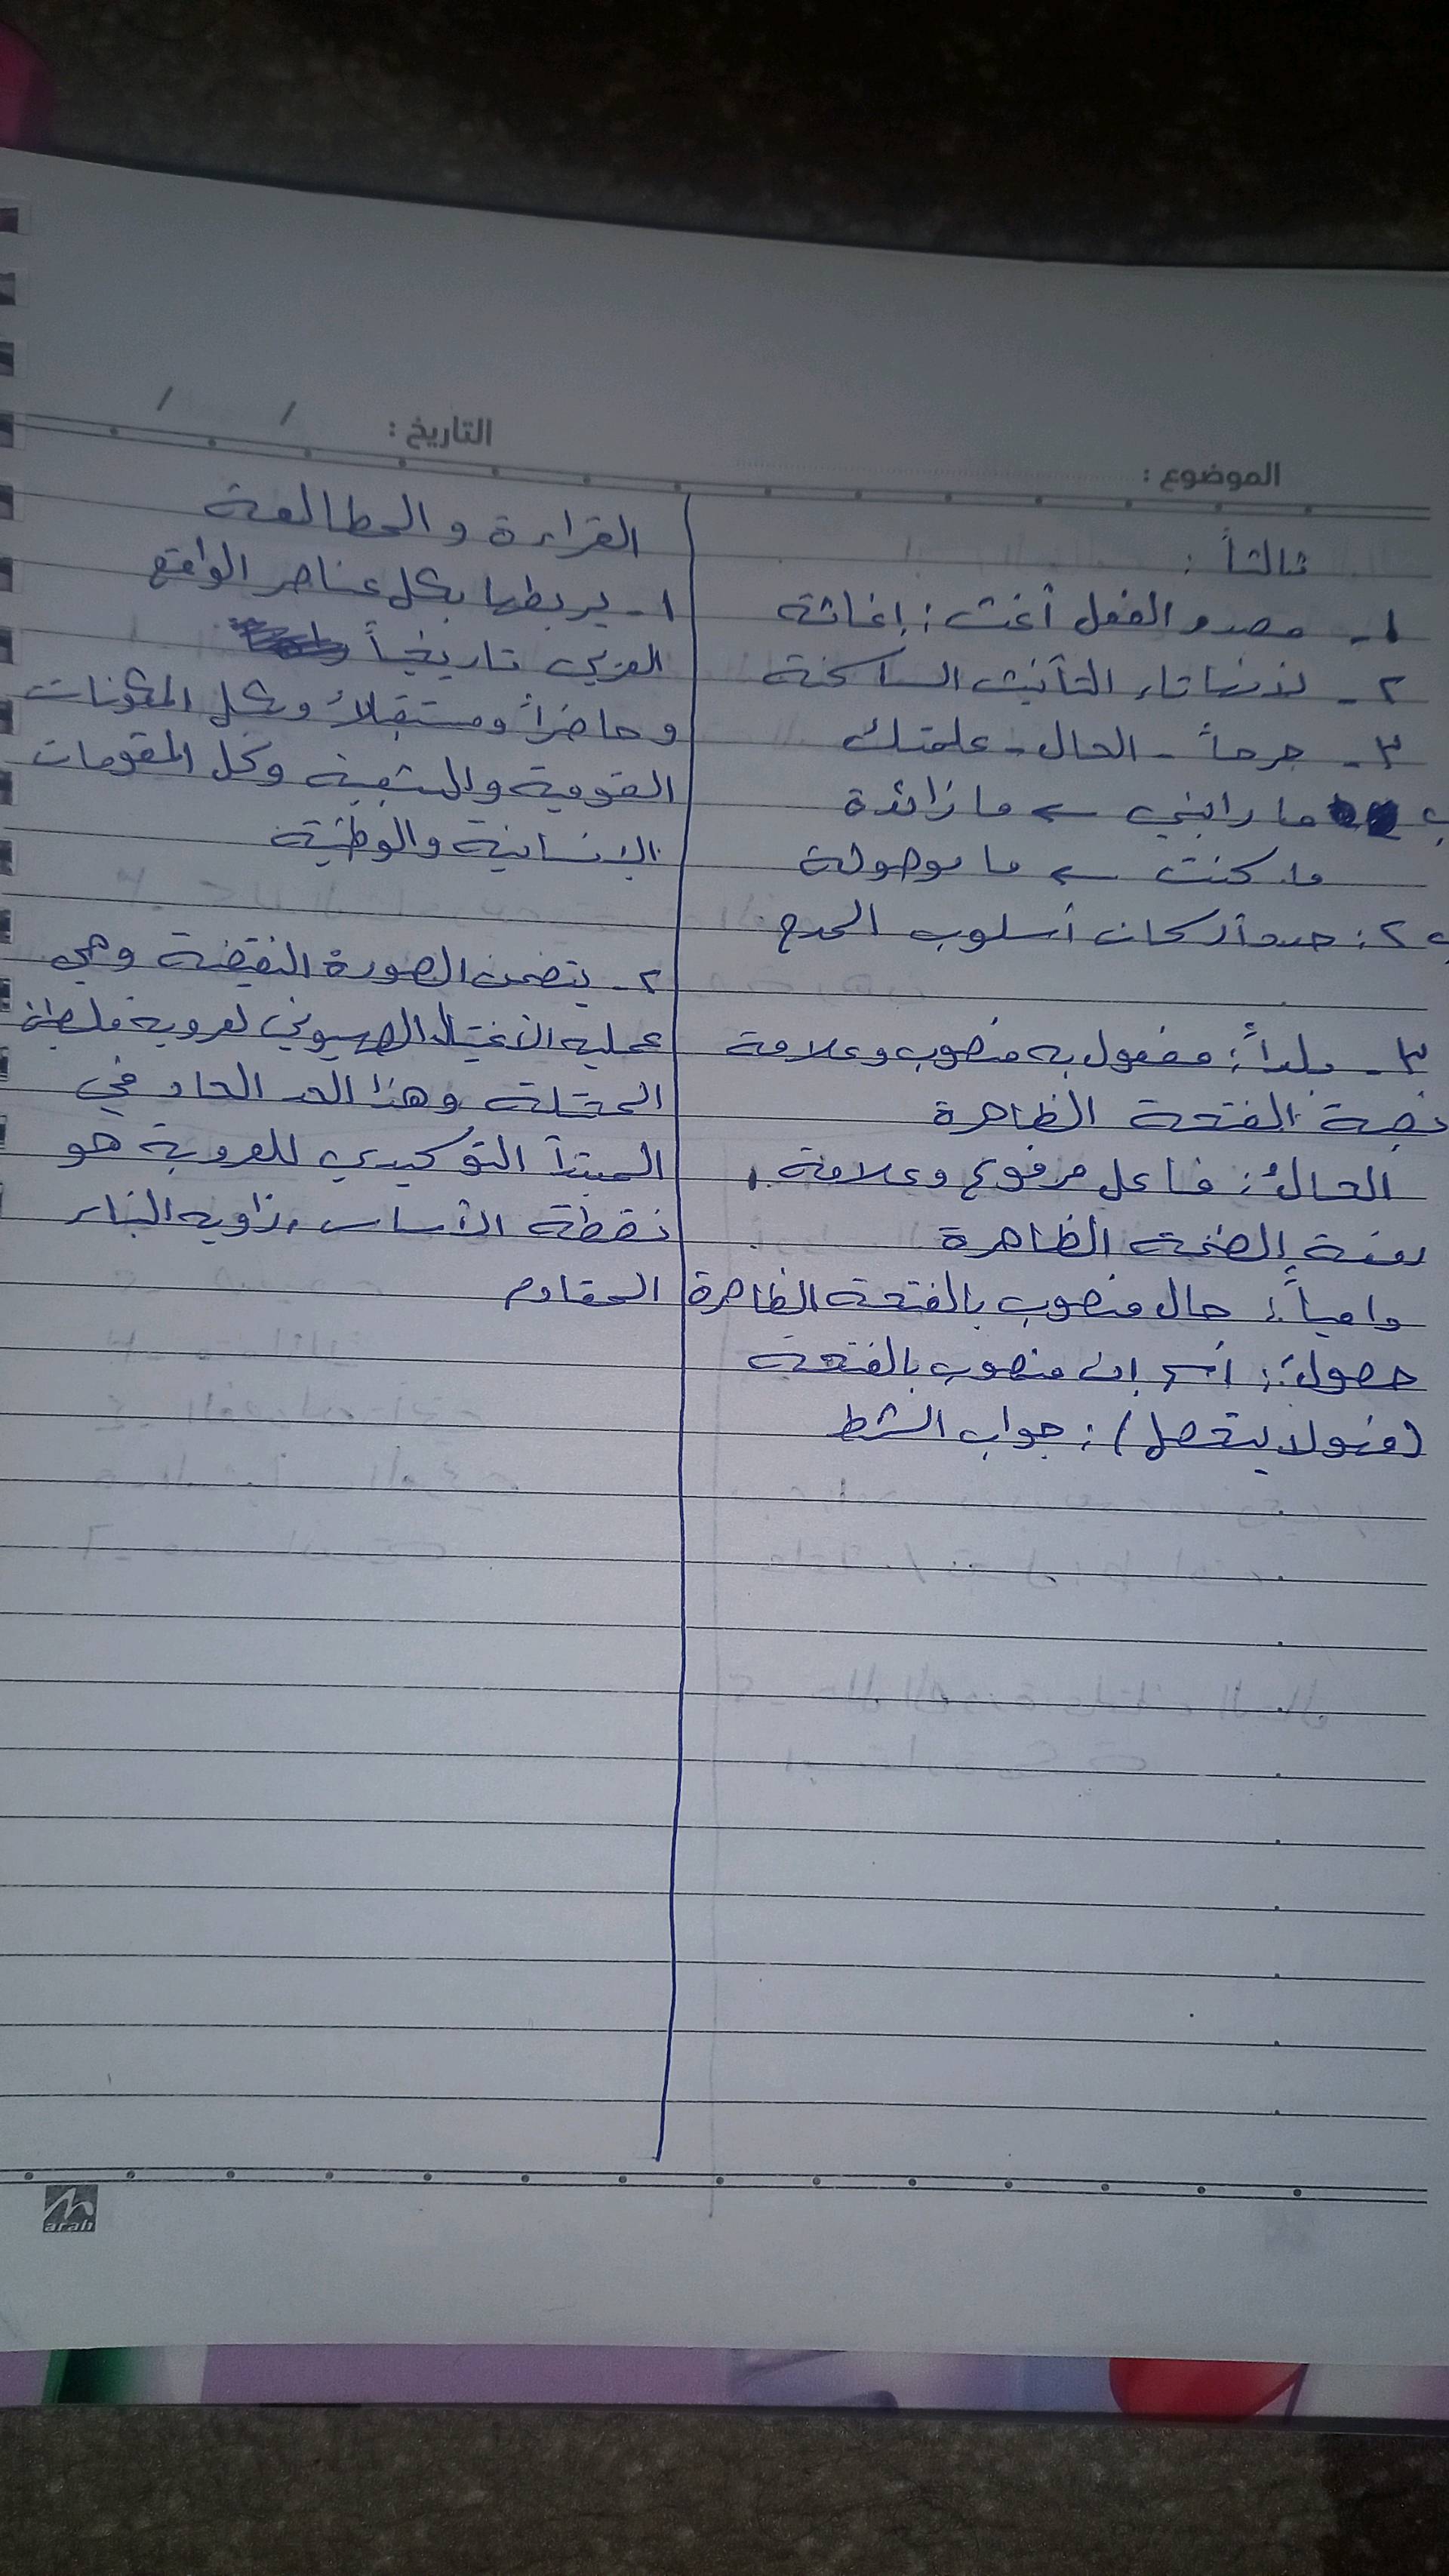 الموضوع :
التاريخ : / /
ثالثاً :
١- مصدر الفعل أغث : إغاثة
٢- لأنها تاء التأنيث الساكنة
٣- جرحاً - الحال - علمتك
ب ما رابني ← ما زائدة
ما كنت ← ما موصولة
ب ٢ : حدد أركان أسلوب المدح
٣- بلداً : مفعول به منصوب وعلامة
نصبة الفتحة الظاهرة
الحالُ : فاعل مرفوع وعلامة
رفعة الضمة الظاهرة
دامياً : حال منصوب بالفتحة الظاهرة
حصول : اسم إن منصوب بالفتحة
(فهو لا يتصل) : جواب الشرط
القراءة والمطالعة
١- يربطها بكل عناصر الواقع
العربي تاريخاً
وحاضراً ومستقبلاً وبكل المكونات
القومية والشعبية وكل المقومات
الإنسانية والوطنية
٢- يتضمن الصورة النقيضة وهي
عملية الاغتيال الصهيوني لعروبة فلسطين
المحتلة وهذا الحد الحاد في
المبتدأ التوكيدي للعروبة هو
نقطة الأساس زاوية البناء
المقاوم
arab